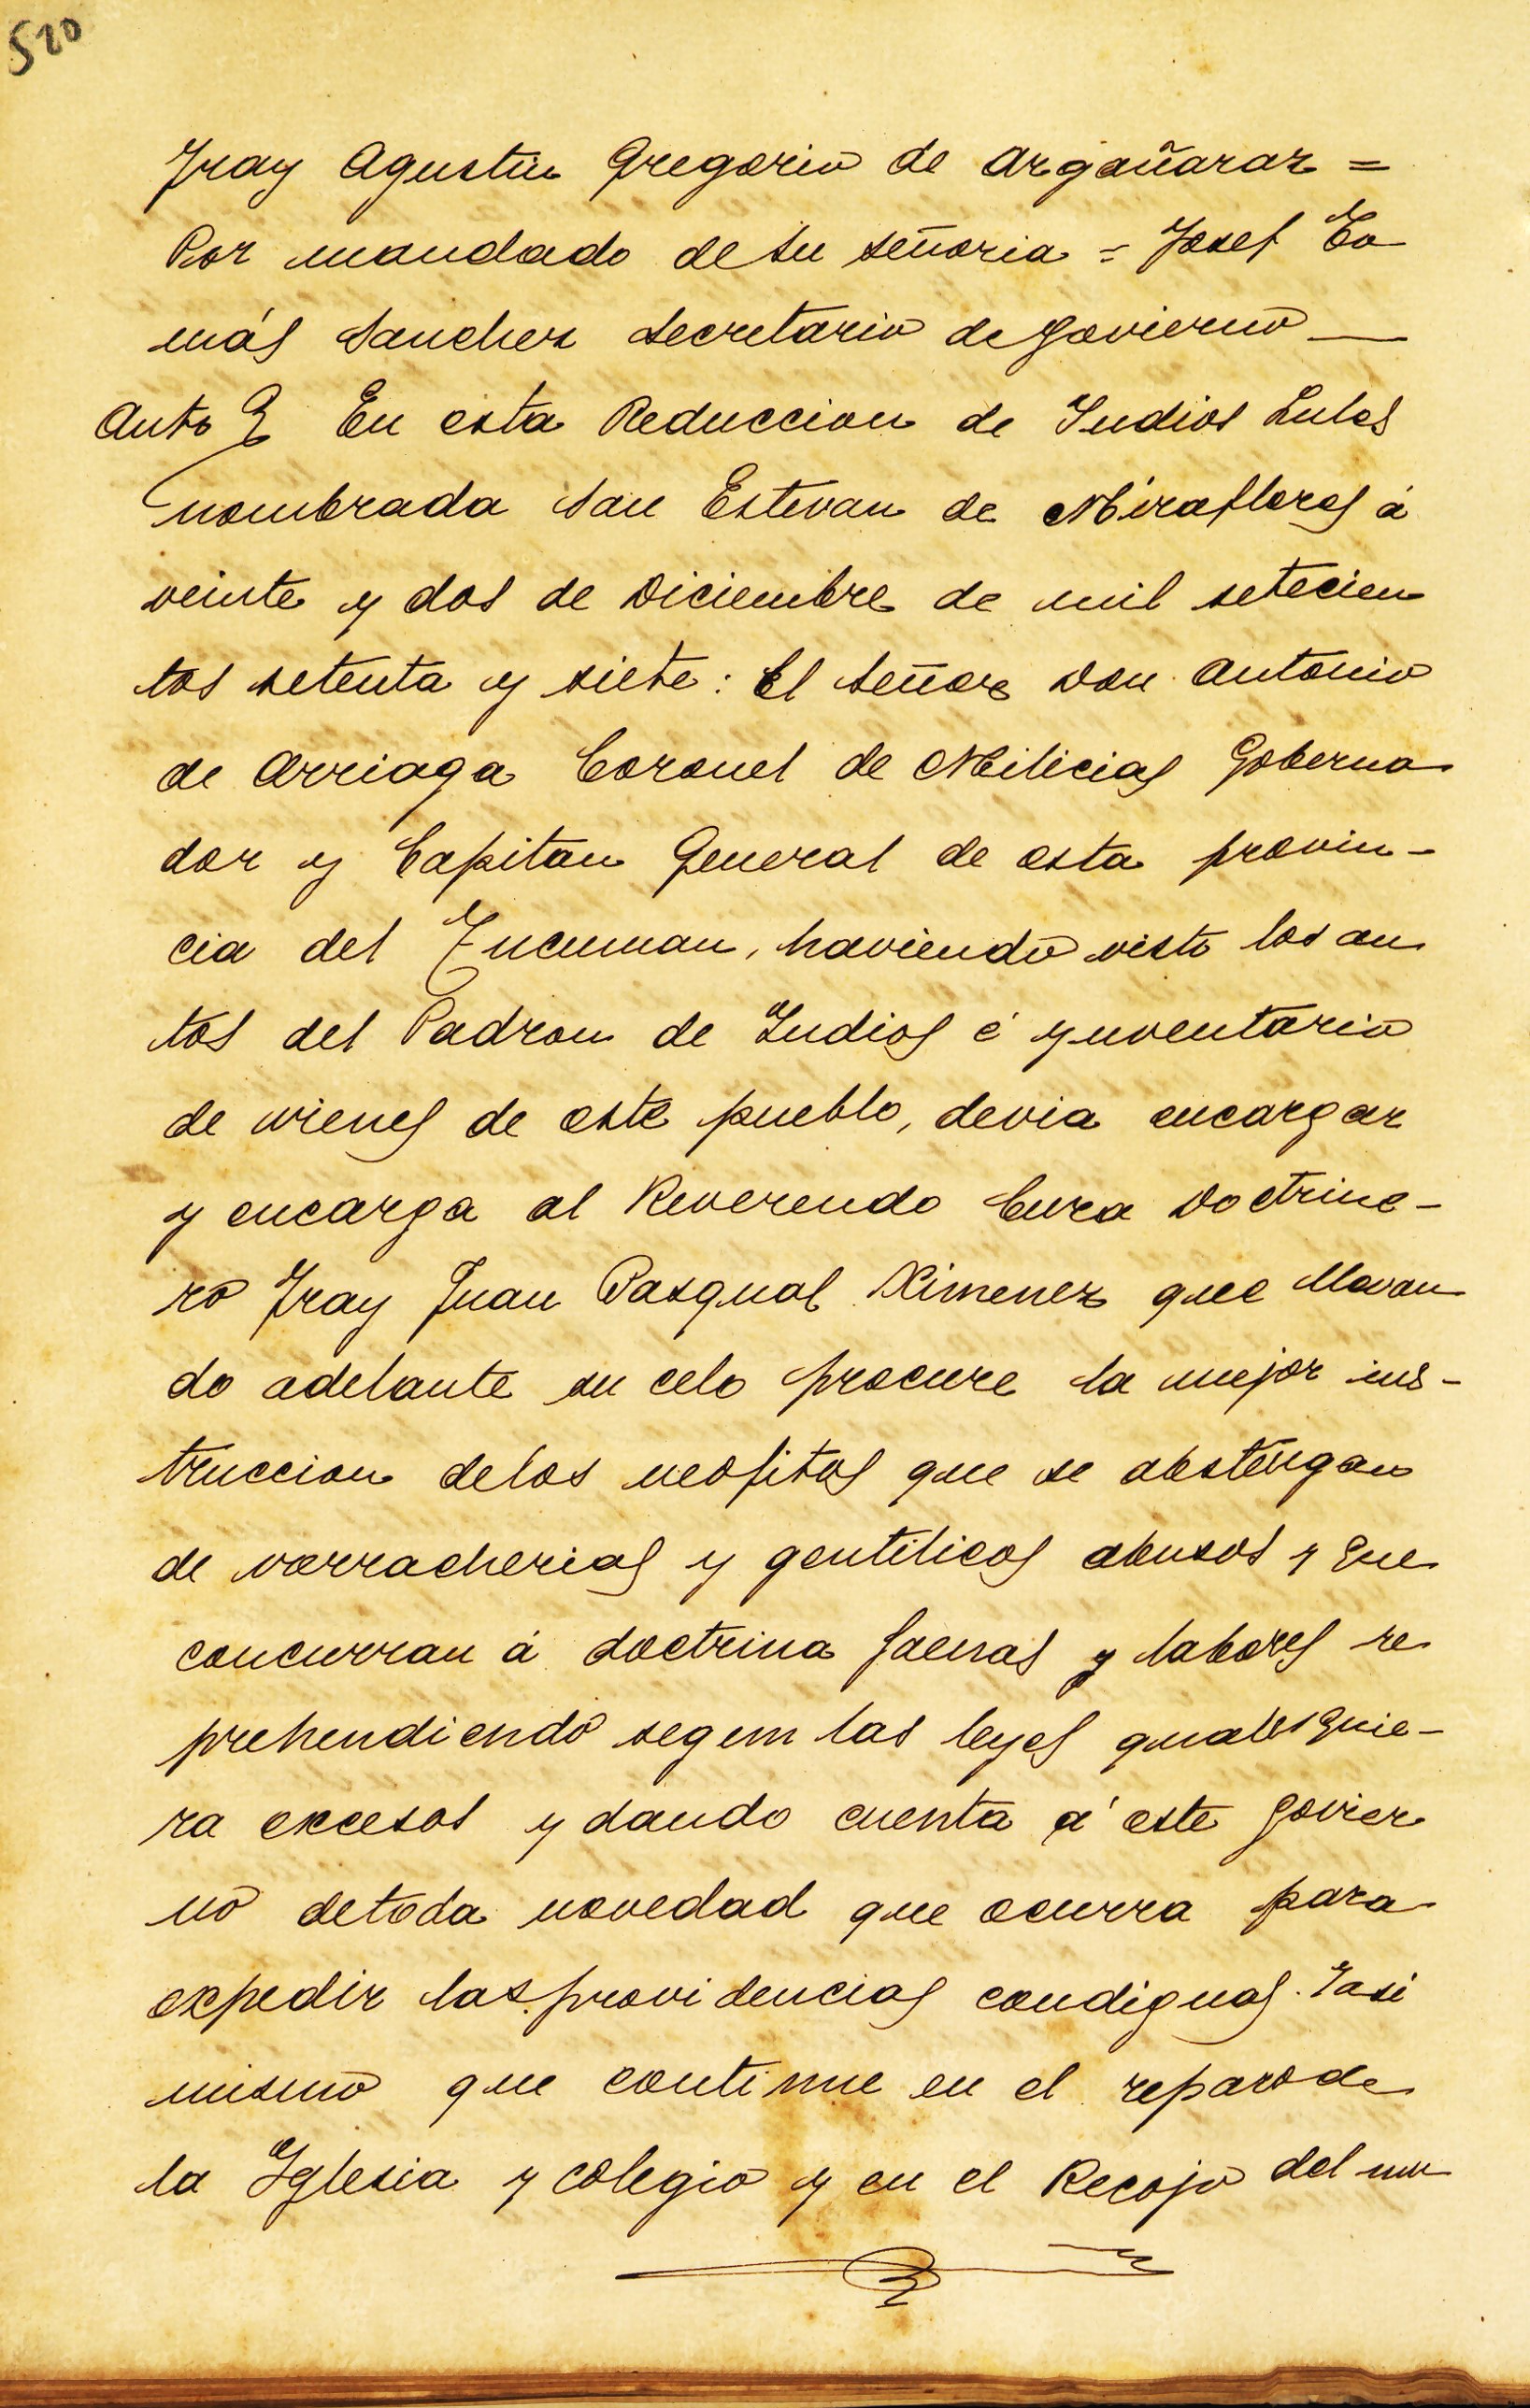 520
Fray Agustin Gregorio de Argañaraz =
Por mandado de su señoria = Josef To
más Sanchez secretario de Govierno —
Auto En esta Reduccion de Indios Lules
nombrada San Estevan de Miraflores á
veinte y dos de Diciembre de mil setecien
tos setenta y siete: El Señor Don Antonio
de Arriaga Coronel de Milicias Goberna
dor y Capitan General de esta provin-
cia del Tucuman, haviendo visto los au
tos del Padron de Indios é ynventario
de vienes de este pueblo, devia encargar
y encarga al Reverendo Cura Doctrine-
ro Fray Juan Pasqual Ximenez que llevan
do adelante su celo procure la mejor ins-
truccion delos neofitos que se abstengan
de vorracherias y gentilicos abusos y que
concurran á doctrina faenas y labores re
prehendiendo segun las leyes qualesquie-
ra excesos y dando cuenta á este Govier
no detoda novedad que ocurra para
expedir las providencias condignas. Yasi
mismo que continue en el reparode
la Iglesia y colegio y en el Recojo del mu